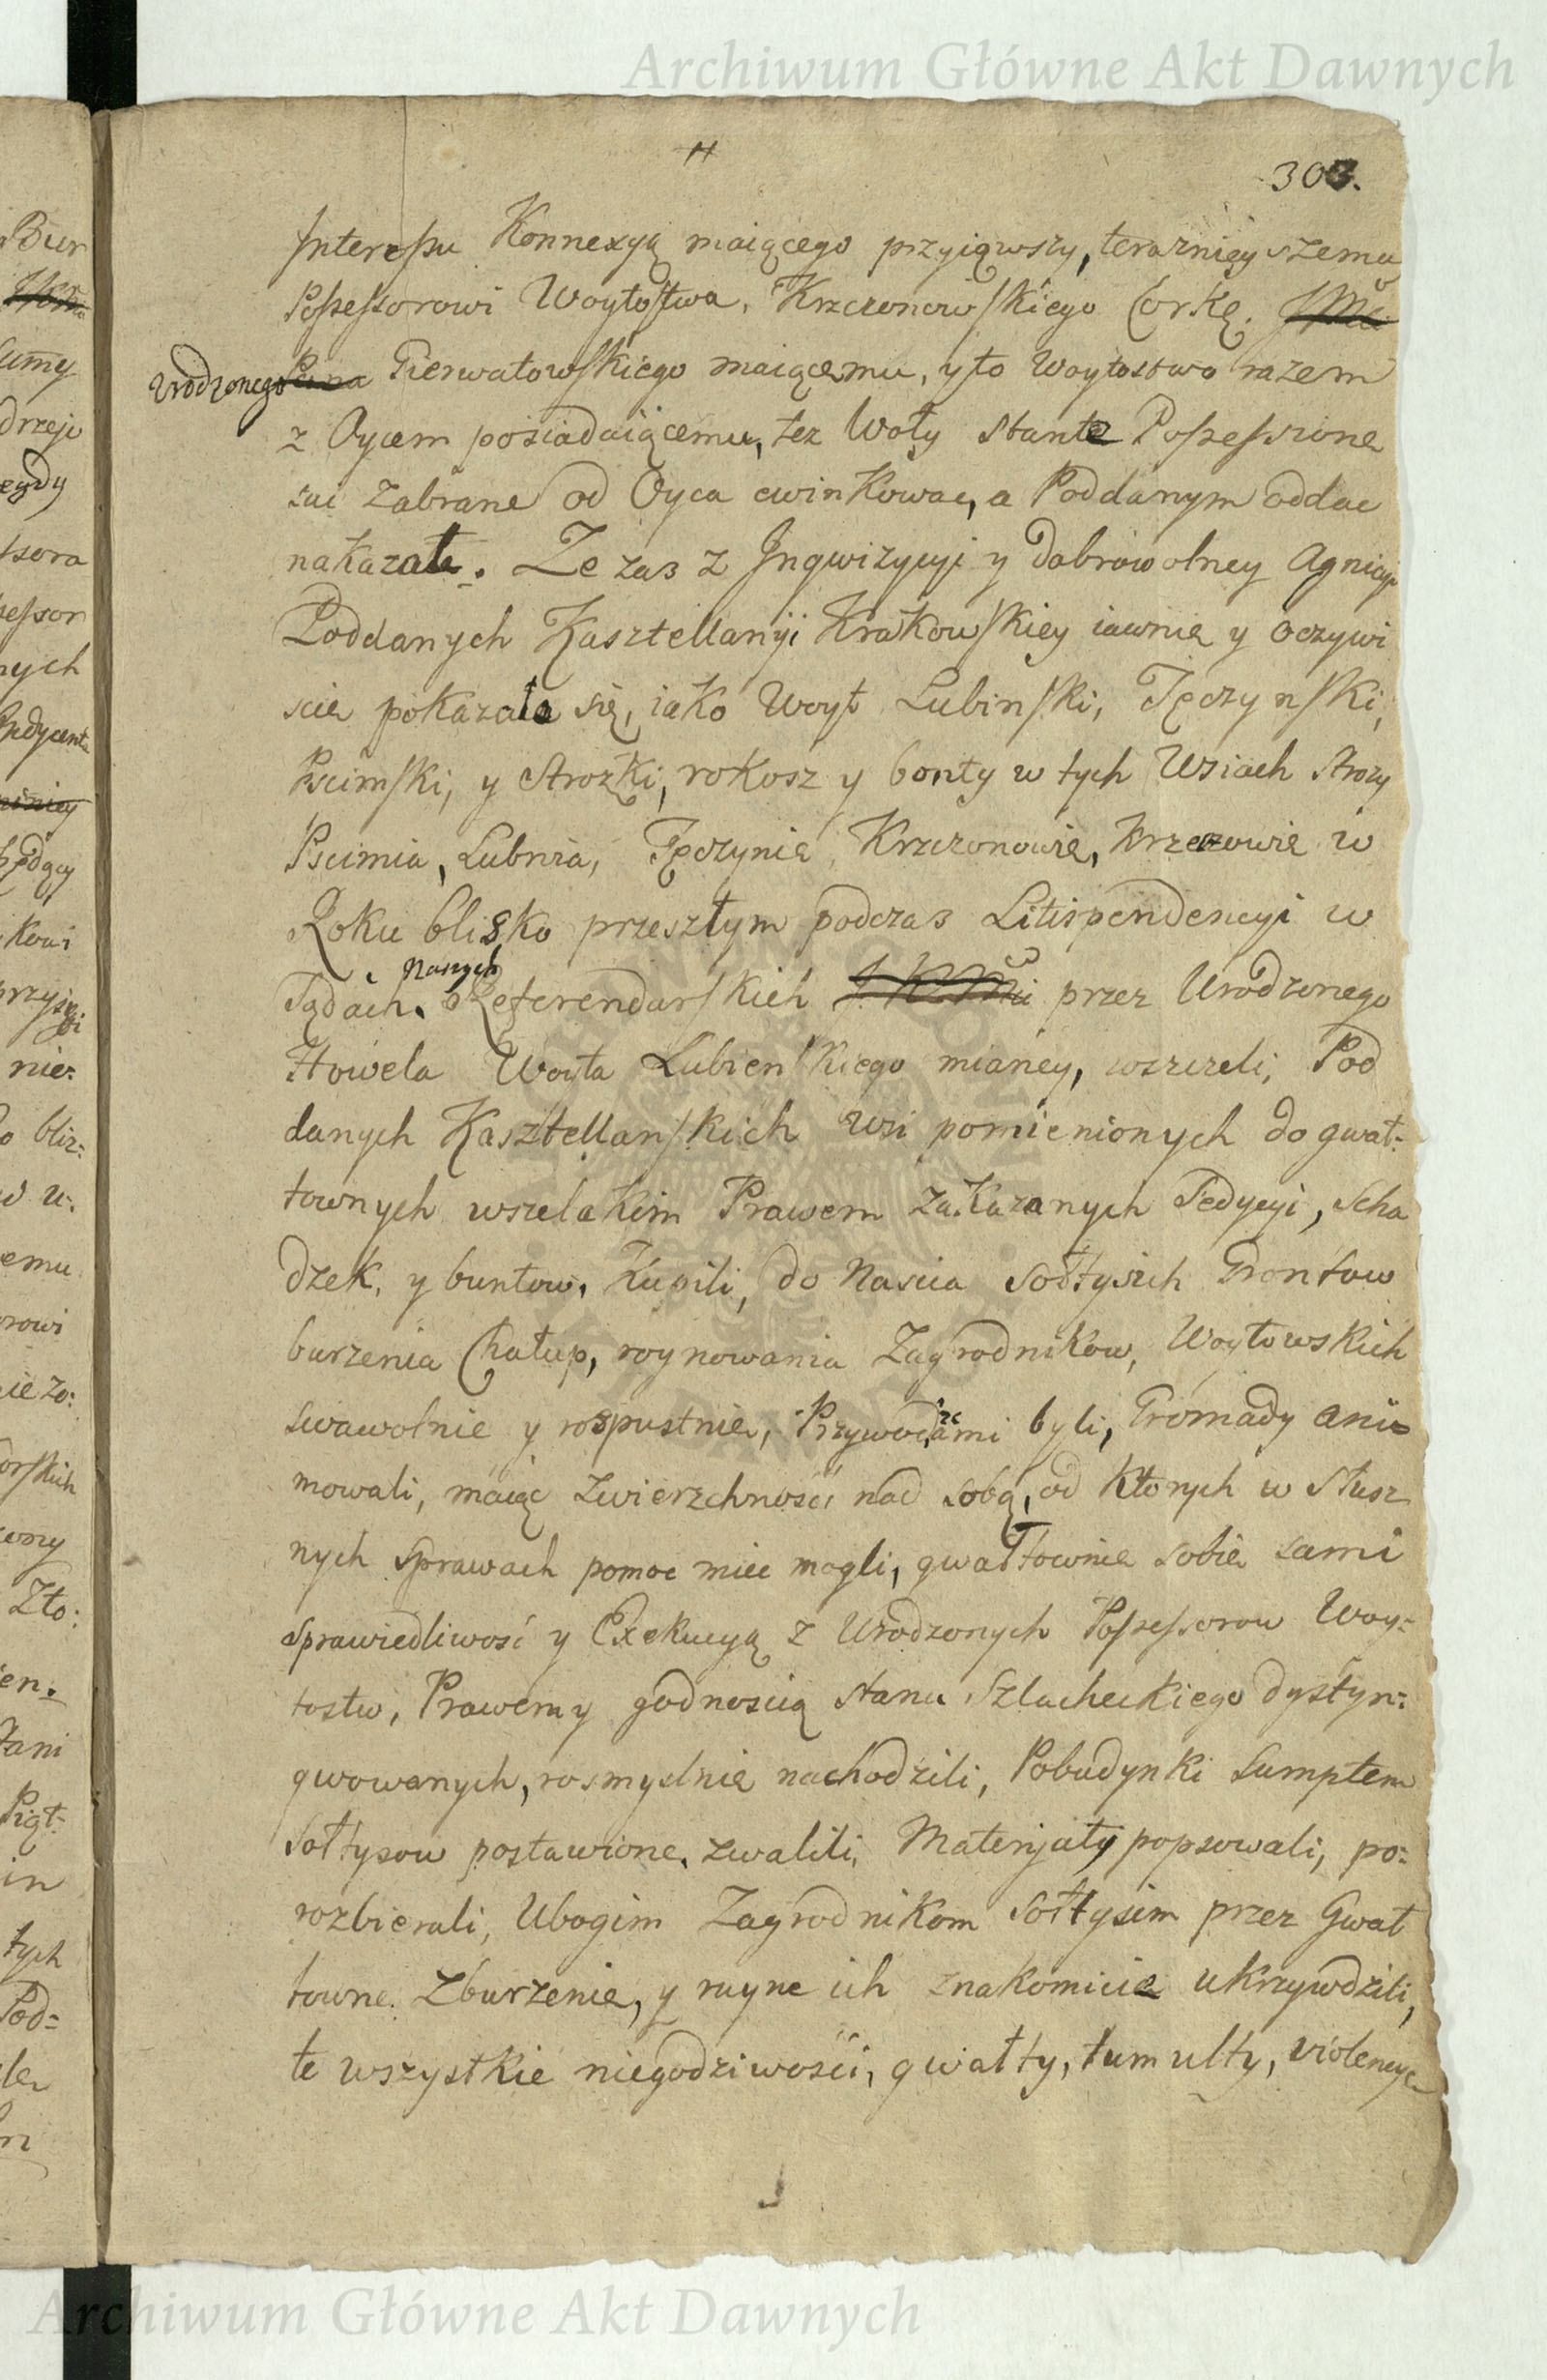 Archiwum Główne Akt Dawnych
303.
Interessu Konnexyą maiącego przyiąwszy, teraznieyszemu
Possessorowi Woytostwa, Krzczonowskiego Corkę. JMci
Urodzonego Pana Pierwatowskiego maiącemu, y to Woytostwo razem
z Oycem posiadaiącemu, tez Woły stante Possessione
sui zabrane od Oyca ewinkowac, a Poddanym oddac
nakazałe. Ze zas z Inqwizycyi y dobrowolney Agnicyi
Poddanych Kasztellanyi Krakowskiey iawnie y oczywi
scie pokazało się, iako Woyt Lubinski, Tęczynski,
Pscimski, y Strozki, rokosz y bonty w tych Wsiach Strozy
Pscimia, Lubnia, Tęczynie, Krzczonowie, Krzczowie w
Roku blisko przeszłym podczas Litispendencyi w
Sądach Naszych Referendarskich J K Mci przez Urodzonego
Howela Woyta Lubienskiego mianey, wszczeli, Pod
danych Kasztellanskich wsi pomienionych do gwał:
townych wszelakim Prawem zakazanych Sedycyi, Scha
dzek, y buntow, Kupili, do Nascia Sołtysich Grontow
burzenia Chałup, roynowania Zagrodnikow, Woytowskich
swawolnie y rospustnie, Przywodzcami byli, Gromady ani=
mowali, maiąc Zwierzchność nad sobą, od Ktorych w Słusz
nych sprawach pomoc miec mogli, gwałtownie sobie sami
sprawiedliwość y Exekucyą z Urodzonych Possessorow Woy:
tostw, Prawem y godnoscią Stanu Szlacheckiego dystyn:
gwowanych, rosmyslnie nachodzili, Pobudynki Sumptem
Sołtysow postawione, zwalili, Materyały popsowali, po:
rozbierali, Ubogim Zagrodnikom Sołtysim przez Gwał
towne Zburzenie, y ruyne ich znakomicie ukrzywdzili,
te wszystkie niegodziwości, gwałty, tumulty, violencye
Archiwum Główne Akt Dawnych